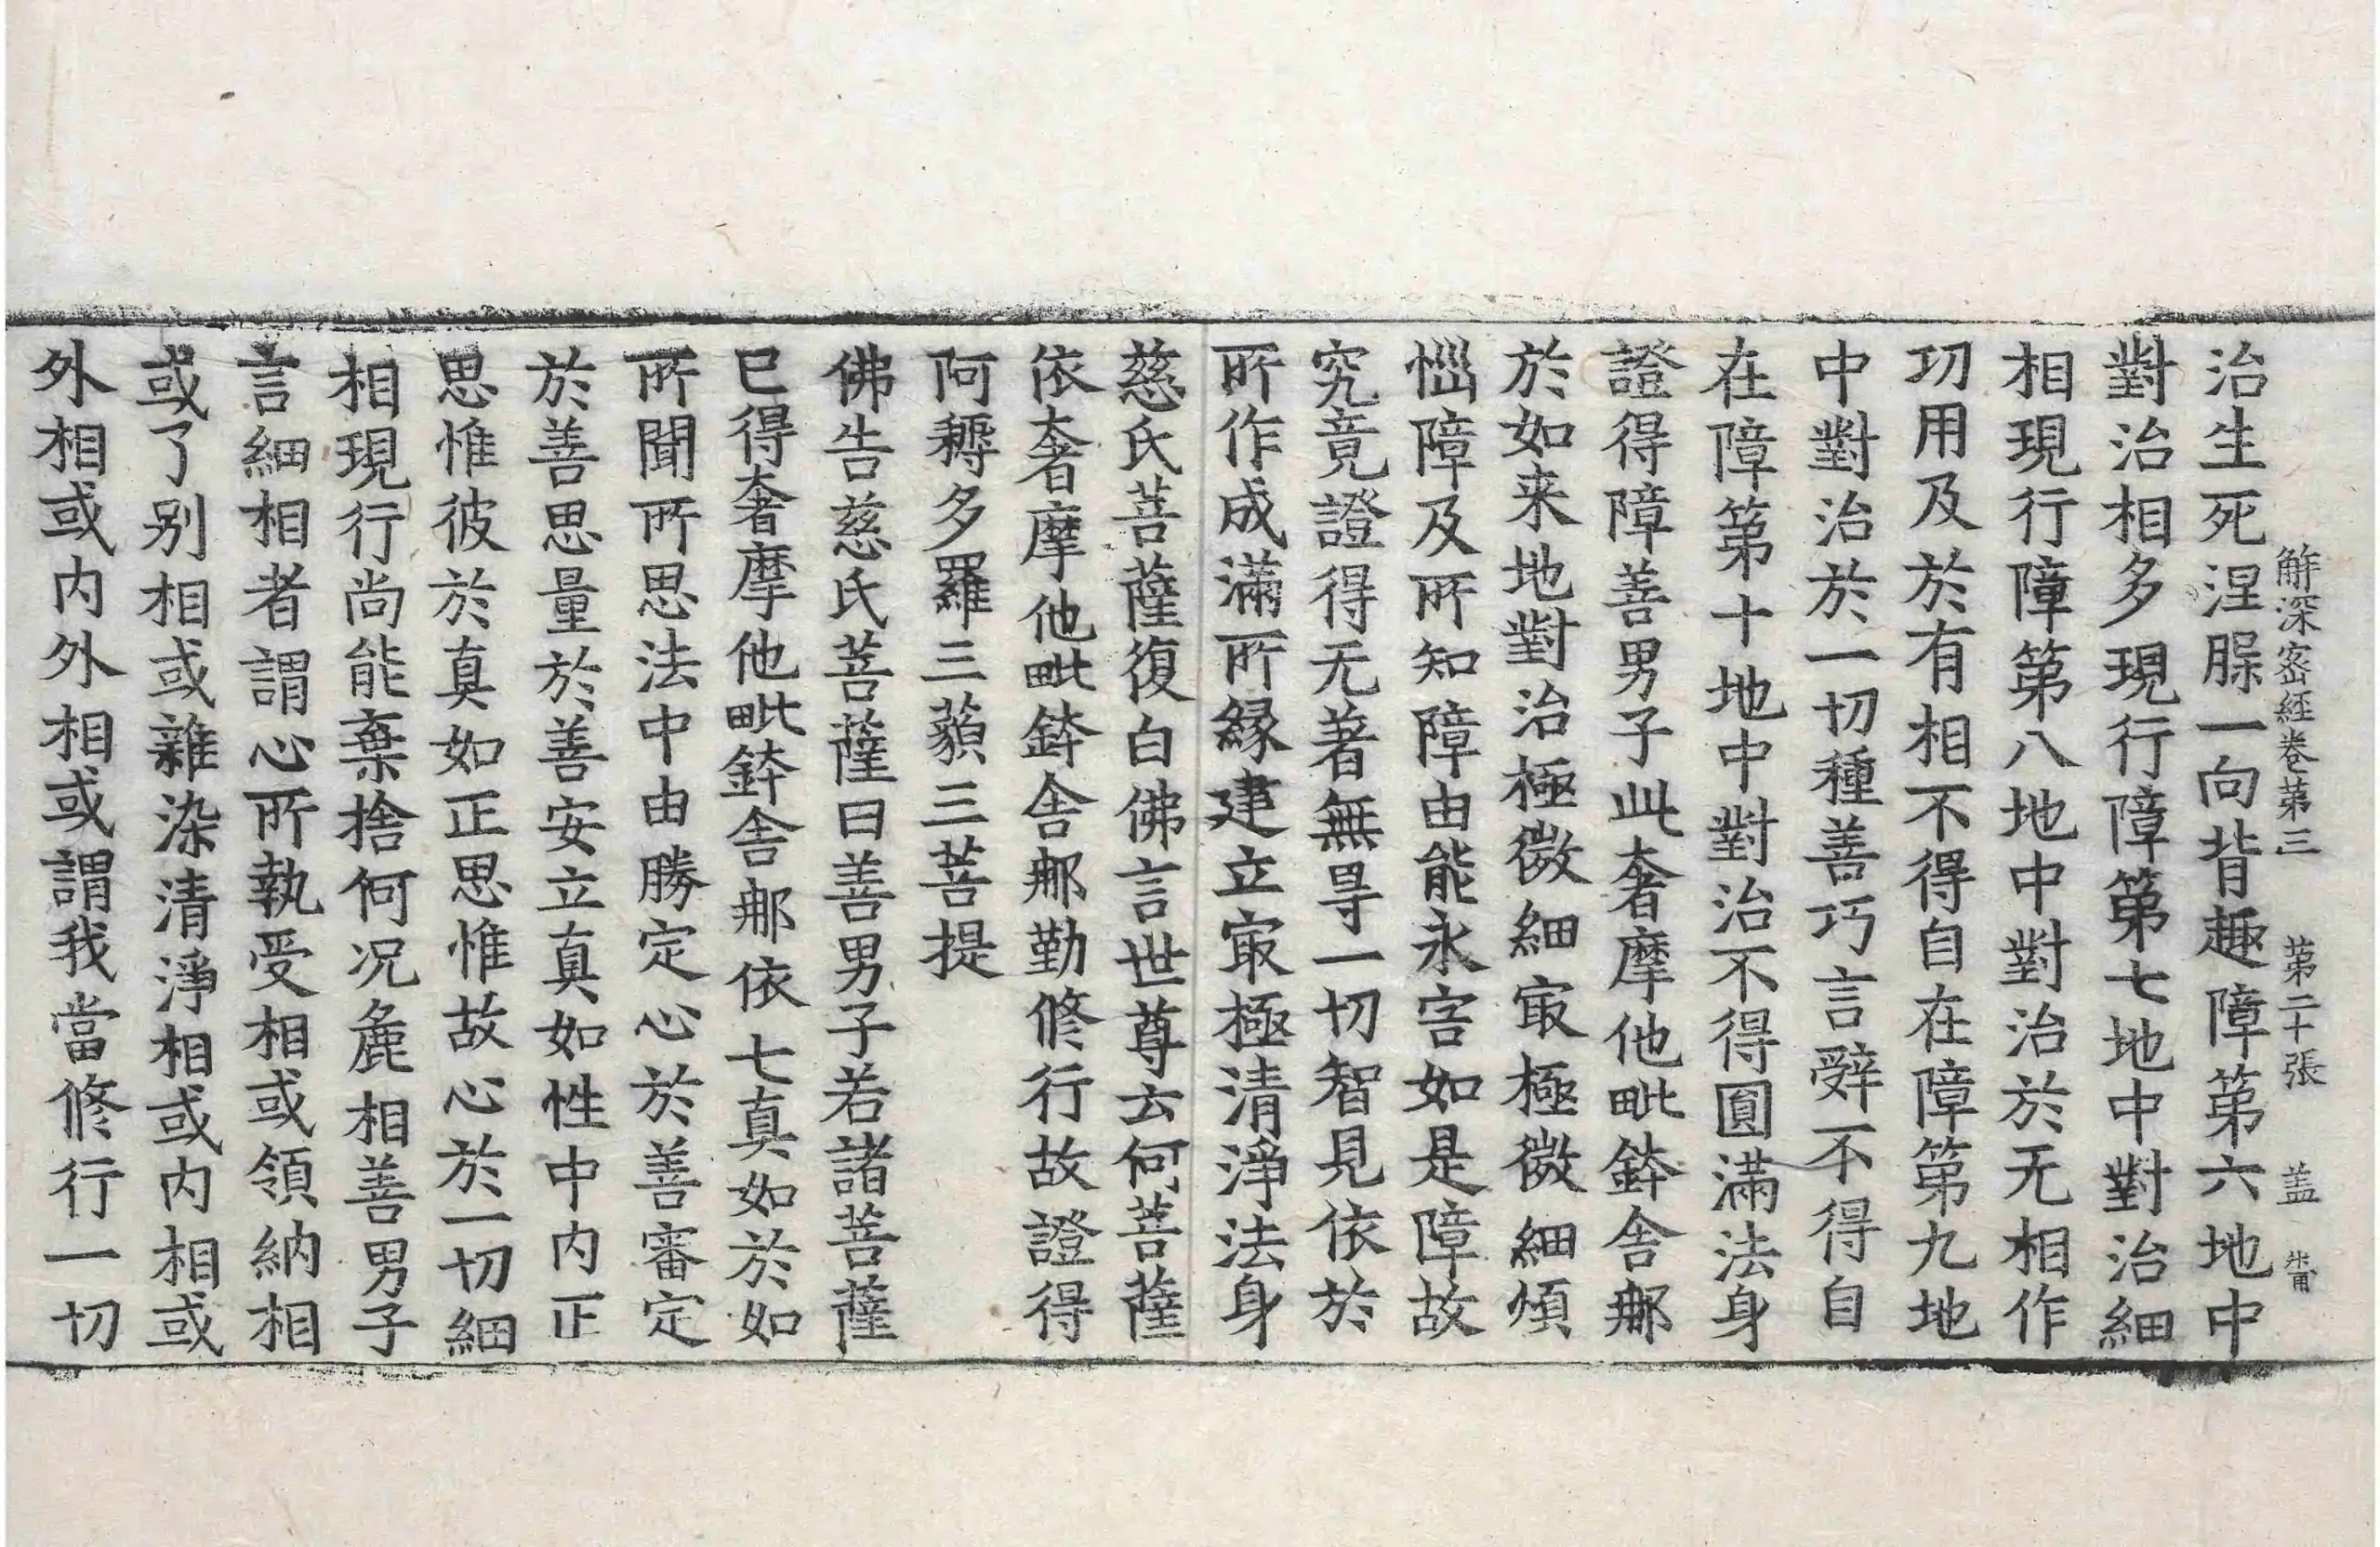 解深密經卷第三 第二十張 盖
治生死涅脲一向背趣障第六地中
對治相多現行障第七地中對治細
相現行障第八地中對治於无相作
功用及於有相不得自在障第九地
中對治於一切種善巧言辤不得自
在障第十地中對治不得圓滿法身
證得障善男子此奢摩他毗鉢舍那
於如来地對治極微細㝡極微細煩
惱障及所知障由能永害如是障故
究竟證得无著無㝵一切智見依於
所作成滿所緣建立㝡極清淨法身
慈氏菩薩復白佛言世尊云何菩薩
依奢摩他毗鉢舍那勤修行故證得
阿耨多羅三藐三菩提
佛告慈氏菩薩曰善男子若諸菩薩
已得奢摩他毗鉢舍那依七真如於如
所聞所思法中由勝定心於善審定
於善思量於善安立真如性中内正
思惟彼於真如正思惟故心於一切細
相現行尚能棄捨何况麁相善男子
言細相者謂心所執受相或領納相
或了别相或雜染清淨相或内相或
外相或内外相或謂我當修行一切